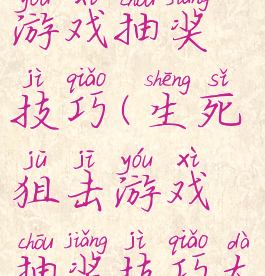 yóu xì chōu jiǎng
游戏抽奖
jì qiǎo shēng sǐ
技巧(生死
jū jī yóu xì
狙击游戏
chōu jiǎng jì qiǎo dà
抽奖技巧大